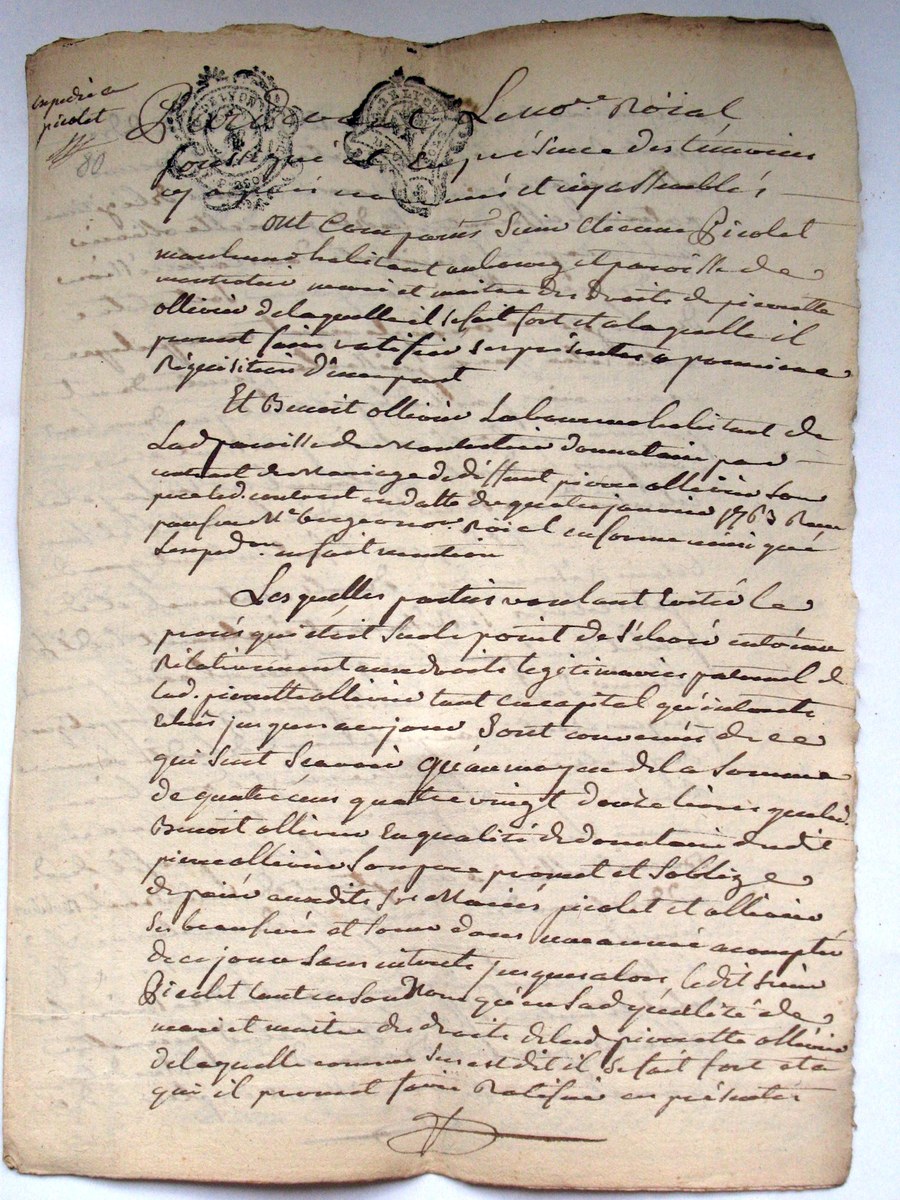 expedié a
picolet
80
Pardevant Le no.re Roïal
soussigné et en présence des témoins
cy après nommés et icy assemblés
ont Comparus Sieur Etienne Picolet
marchand habitant au bourg et paroisse de
mari et maitre des droits de pierrette
ollivier de laquelle il se fait fort et a laquelle il
promet faire ratifier ses présentes a premiere
Réquisition d'une part
Et Benoit ollivier Laboureur habitant de
Lad. paroisse de donnataire par
contrat de Mariage de deffunt pierre ollivier son
pere led. contrat en datte du quatre janvier 1763 Reçu
par feu Me no.re Roïal en forme ainsi que
Lexped.on en fait mention
Lesquelles parties voulant Evité le
procés qui étoit sur le point de S'elevé entréux
Rélativement aux droits légitimaires paternel de
lad. pierrette ollivier tant en capital qu'interets
Echus jusques a ce jour Sont convenus de ce
qui Suit Scavoir Qu'au moyen de la Somme
de quatre cens quatre vingt douze livres que led.
Benoit ollivier En qualité de donataire dudit
pierre ollivier Son pere promet et S'oblige
de païer auxdits Srs Mariés picolet et ollivier
Ses beaufrere et Soeur dans une année a compter
de ce jour Sans interets jusques alors, Ledit Sieur
Picolet tant en Son Nom qu'en Sad. qualité de
mari et maitre des droits de lad. pierrette ollivier
de laquelle comme Sus est dit il se fait fort et a
qui il promet faire Ratifier ces présentes